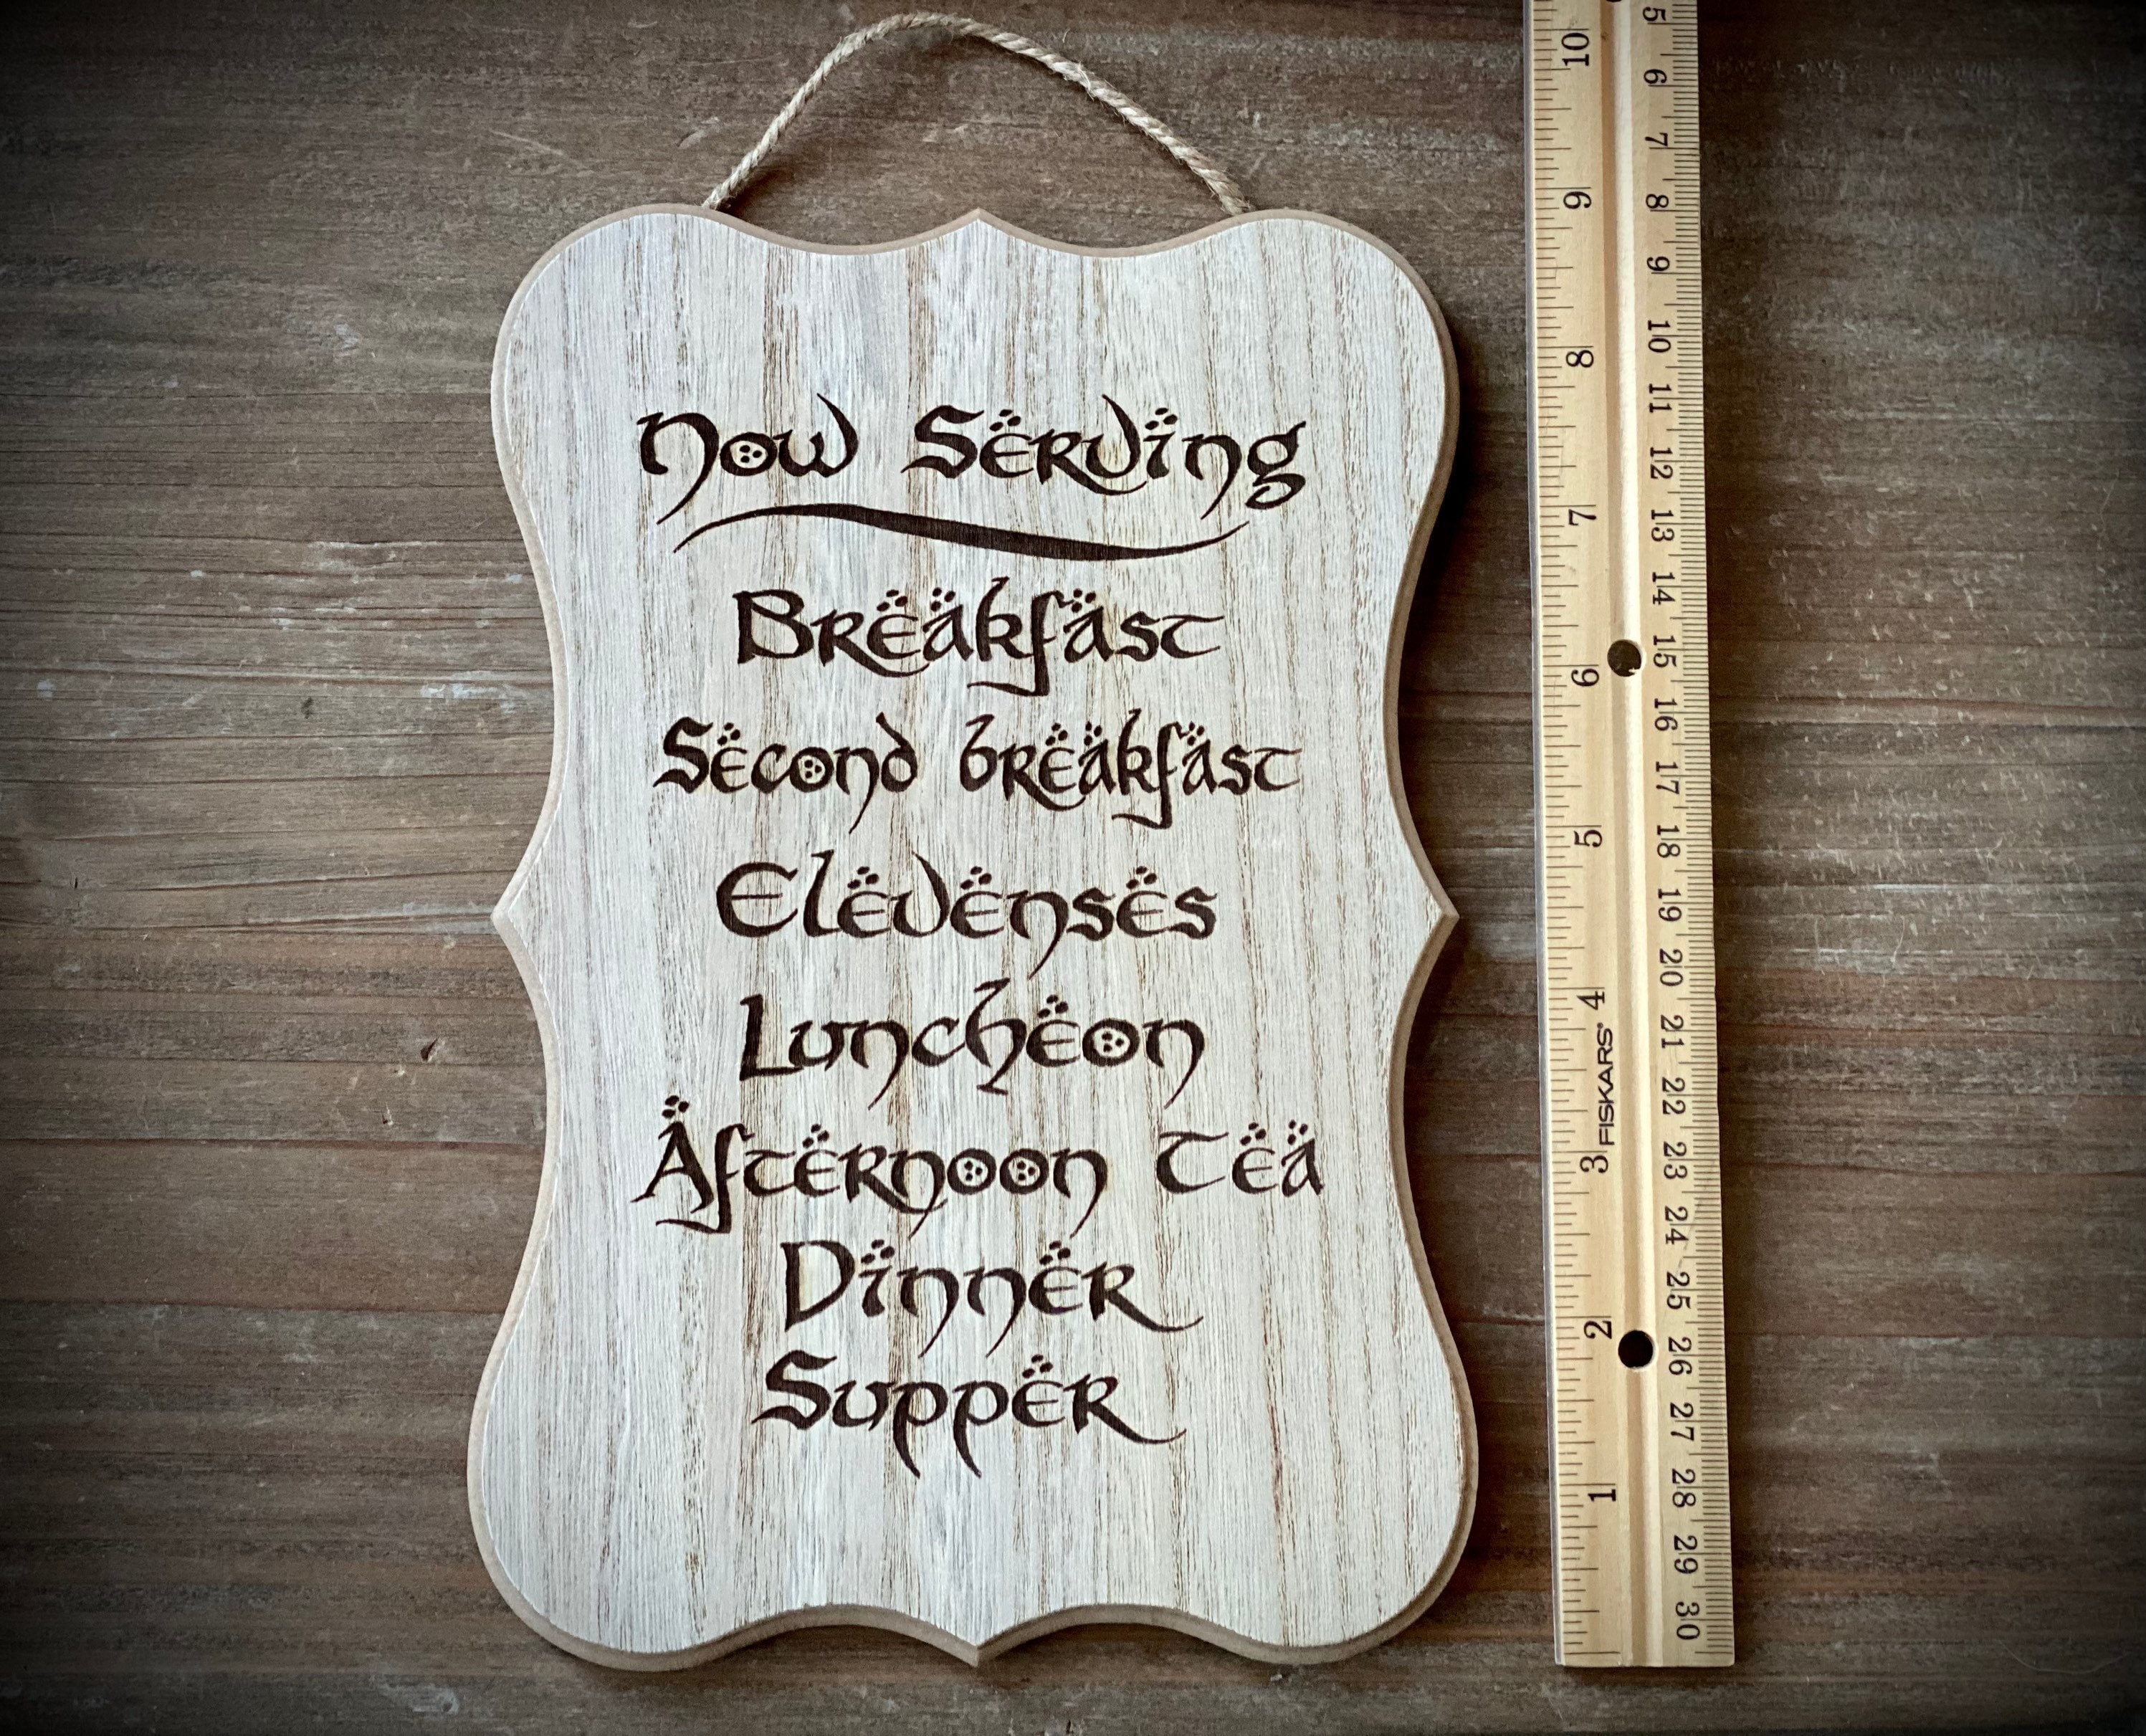 Now Serving
Breakfast
Second breakfast
Elevenses
Luncheon
Afternoon Tea
Dinner
Supper
10 9 8 7 6 5 4 3 2 1
FISKARS
5 6 7 8 9 10 11 12 13 14 15 16 17 18 19 20 21 22 23 24 25 26 27 28 29 30